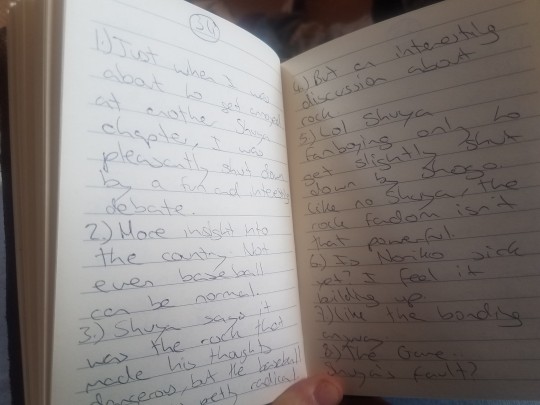 34
1.) Just when I was
about to get annoyed
at another Shuya
chapter, I was
pleasantly shut down
by a fun and interesting
debate.
2.) More insight into
the country. Not
even baseball
can be normal.
3.) Shuya says it
was the rock that
made his thoughts
dangerous, but the baseball
petty radical
4.) But an interesting
discussion about
rock
5.) Lol Shuya
fanboying only to
get slightly shut
down by Shogo.
Like no Shuya, the
rock fandom isn't
that powerful.
6.) Is Noriko sick
yet? I feel it
building up.
7.) Like the bonding
anyway.
8.) The Game...
fault?